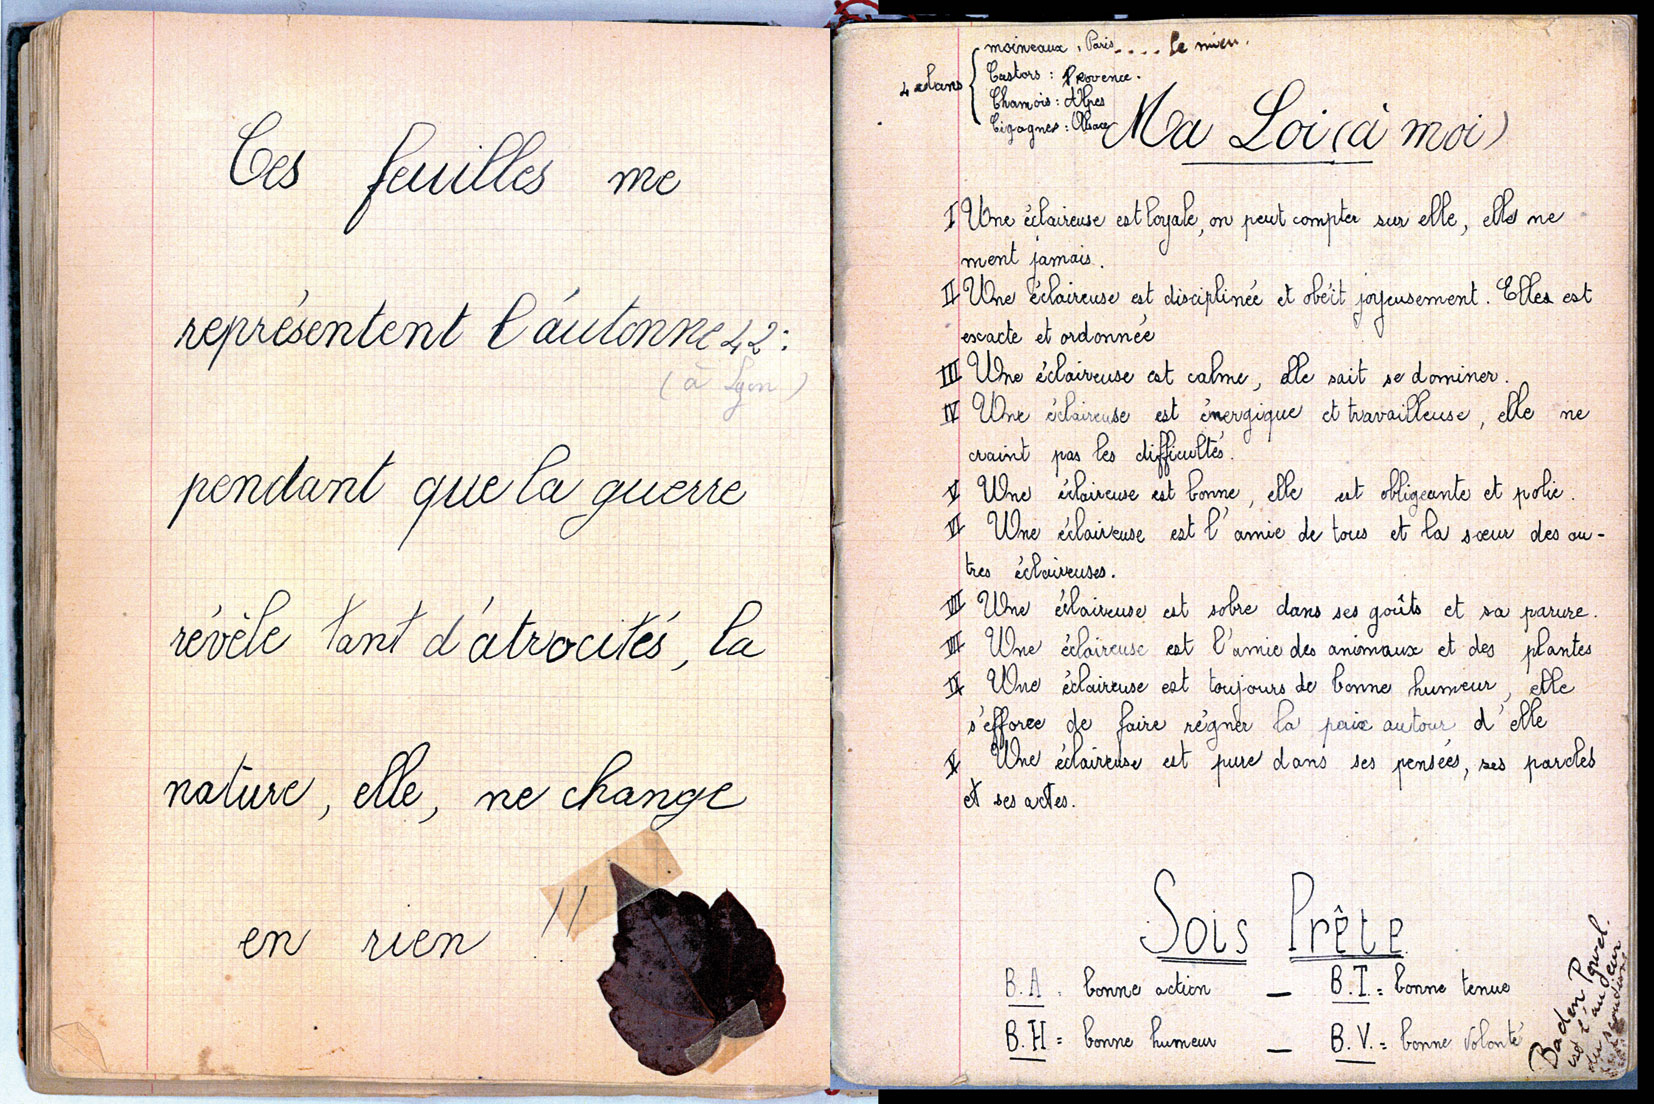 Ces feuilles me
représentent l'automne 42:
(à Lyon)
pendant que la guerre
révèle tant d'atrocités, la
nature, elle, ne change
en rien !!
4 clans
moineaux, Paris.... le mien.
Castors: Provence.
Chamois: Alpes
Cigognes: Alsace
Ma Loi (à moi)
I Une éclaireuse est loyale, on peut compter sur elle, elle ne
ment jamais.
II Une éclaireuse est disciplinée et obéit joyeusement. Elles est
exacte et ordonnée
III Une éclaireuse est calme, elle sait se dominer.
IV Une éclaireuse est énergique et travailleuse, elle ne
craint pas les difficultés.
V Une éclaireuse est bonne, elle est obligeante et polie.
VI Une éclaireuse est l'amie de tous et la sœur des au-
tres éclaireuses.
VII Une éclaireuse est sobre dans ses goûts et sa parure.
VIII Une éclaireuse est l'amie des animaux et des plantes
IX Une éclaireuse est toujours de bonne humeur, elle
s'efforce de faire régner la paix autour d'elle
X Une éclaireuse est pure dans ses pensées, ses paroles
et ses actes.
Sois Prête
B.A. bonne action – B.T. = bonne tenue
B.H = bonne humeur – B.V. = bonne volonté
Baden Powel.
est l'
du